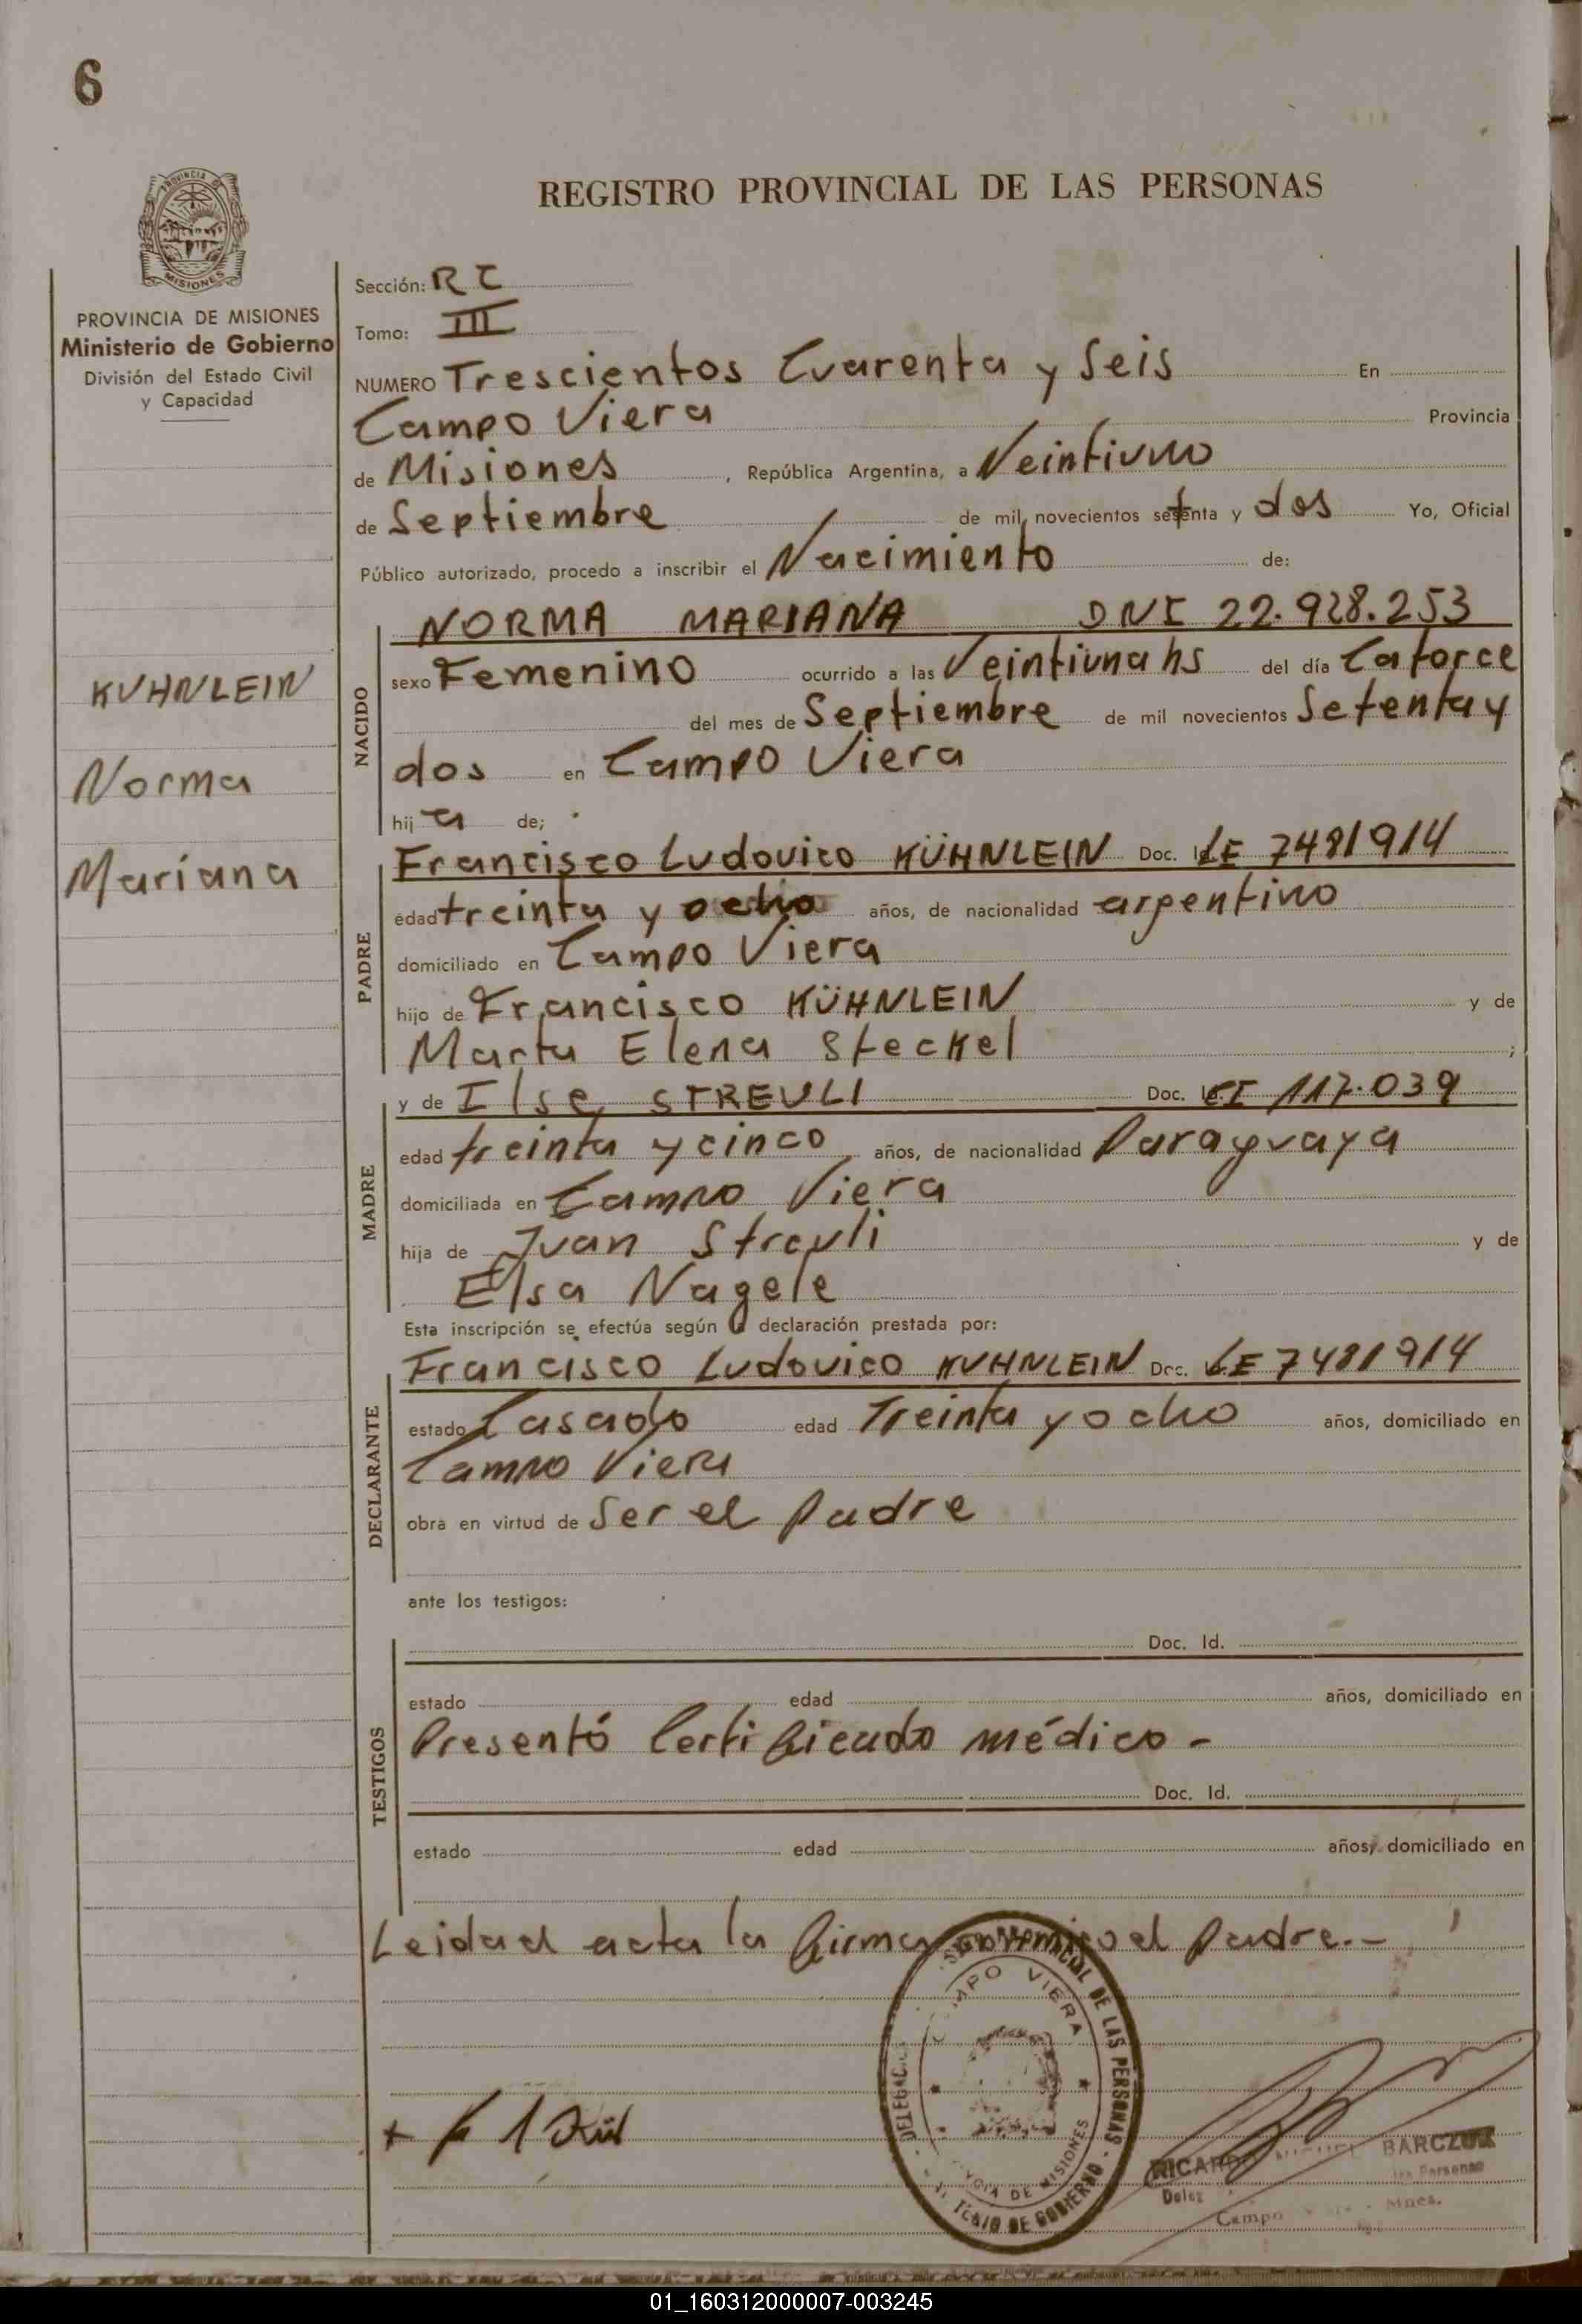 6
PROVINCIA
MISIONES
PROVINCIA DE MISIONES
Ministerio de Gobierno
División del Estado Civil
y Capacidad
KUHNLEIN
Norma
Mariana
REGISTRO PROVINCIAL DE LAS PERSONAS
Sección: R C
Tomo: III
NUMERO Trescientos Cuarenta y Seis En
Campo Viera Provincia
de Misiones, República Argentina, a Veintiuno
de Septiembre de mil novecientos setenta y dos Yo, Oficial
Público autorizado, procedo a inscribir el Nacimiento de:
NORMA MARIANA DNI 22.928.253
NACIDO
sexo Femenino ocurrido a las Veintiuna hs del día Catorce
del mes de Septiembre de mil novecientos Setenta y
dos en Campo Viera
hij a de;
Francisco Ludovico KÜHNLEIN Doc. LE 7481914
PADRE
edad treinta y ocho años, de nacionalidad argentino
domiciliado en Campo Viera
hijo de Francisco KÜHNLEIN y de
Marta Elena Steckel ;
y de Ilse STREULI Doc. CI 117.039
MADRE
edad treinta y cinco años, de nacionalidad Paraguaya
domiciliada en Campo Viera
hija de Juan Streuli y de
Elsa Nagele
Esta inscripción se efectúa según la declaración prestada por:
Francisco Ludovico KUHNLEIN Doc. LE 7481914
DECLARANTE
estado Casado edad Treinta y ocho años, domiciliado en
Campo Viera
obra en virtud de Ser el Padre
ante los testigos:
Doc. Id.
TESTIGOS
estado edad años, domiciliado en
Presentó Certificado médico -
Doc. Id.
estado edad años, domiciliado en
Leida el acta la firma conmigo el Padre.-
CAMPO VIERA
DE LAS PERSONAS
DE MISIONES
DE GOBIERNO
RICARDO MIGUEL BARCZUK
las Personas
Campo Viera - Mnes.
01_160312000007-003245